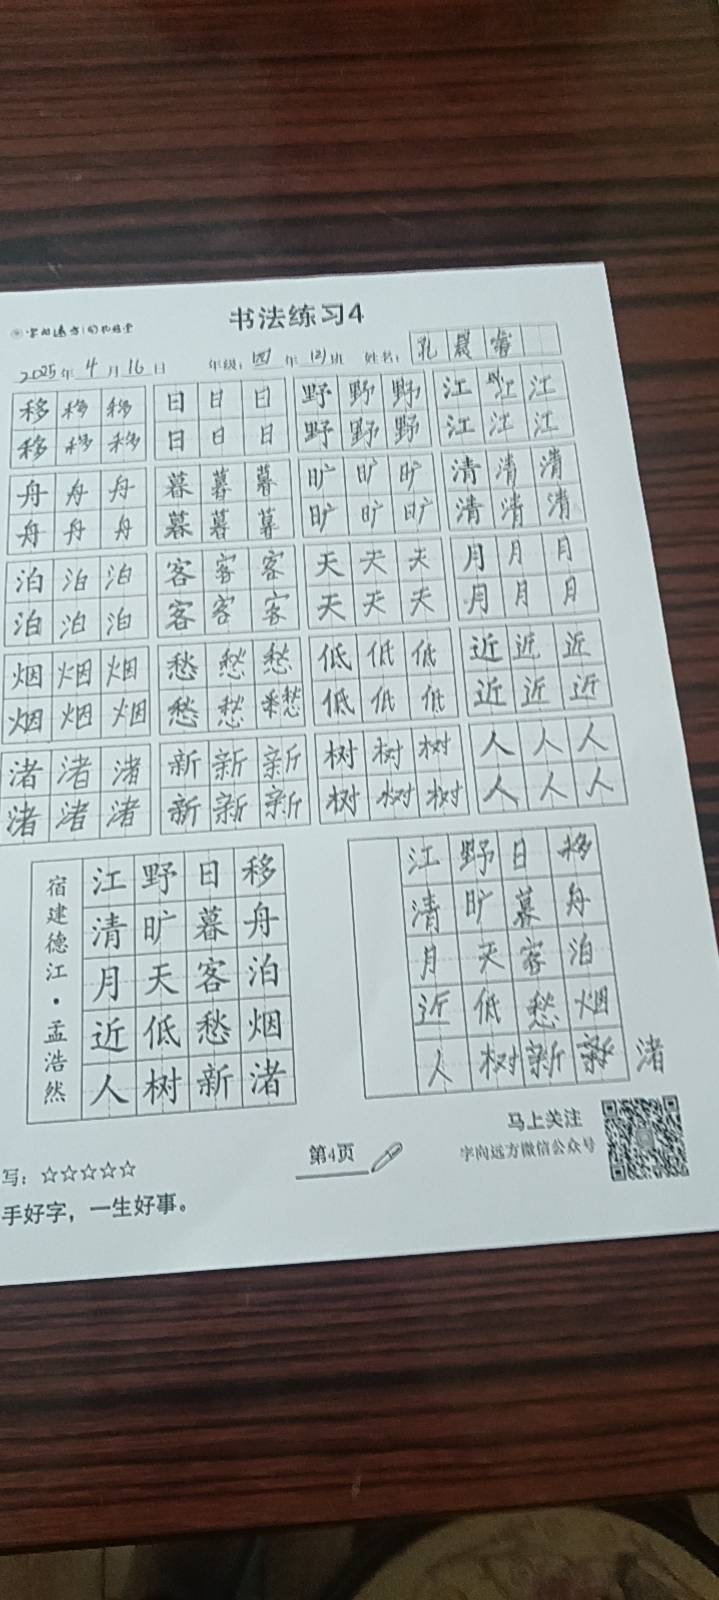 字向远方
书法练习4
2025年4月16日 年级：四年(2)班 姓名：孔晨
移移移 日日日 野野野 江江江
移移移 日日日 野野野 江江江
舟舟舟 暮暮暮 旷旷旷 清清清
舟舟舟 暮暮暮 旷旷旷 清清清
泊泊泊 客客客 天天天 月月月
泊泊泊 客客客 天天天 月月月
烟烟烟 愁愁愁 低低低 近近近
烟烟烟 愁愁愁 低低低 近近近
渚渚渚 新新新 树树树 人人人
渚渚渚 新新新 树树树 人人人
移舟泊烟渚
日暮客愁新
野旷天低树
江清月近人
宿建德江·孟浩然
移舟泊烟
渚
日暮客愁新
野旷天低树
江清月近人
马上关注
字向远方微信公众号
第4页
写：☆☆☆☆☆
手好字，一生好事。